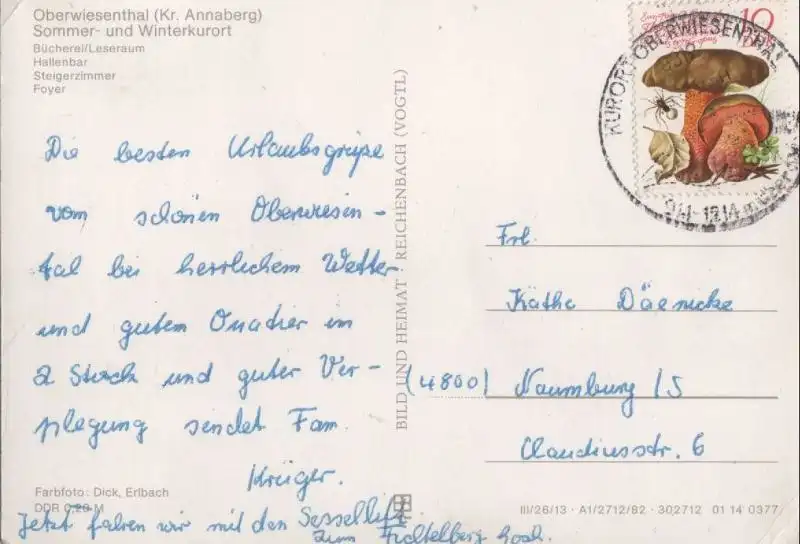 Oberwiesenthal (Kr. Annaberg)
Sommer- und Winterkurort
Bücherei/Leseraum
Hallenbar
Steigerzimmer
Foyer
Die besten Urlaubsgrüße
vom schönen Oberwiesen-
tal bei herrlichem Wetter
und gutem Quatier im
2 Stock und guter Ver-
pflegung sendet Fam.
Krüger.
Jetzt fahren wir mit den Sessellift
zum Fichtelberg hoch.
Farbfoto: Dick, Erlbach
DDR 0,20 M
BILD UND HEIMAT REICHENBACH (VOGTL)
10
KURORT OBERWIESENTHAL
Frl.
Käthe Däenicke
(4800) Naumburg / S
Claudiusstr. 6
III/26/13 · A1/2712/82 · 302712 01 14 0377